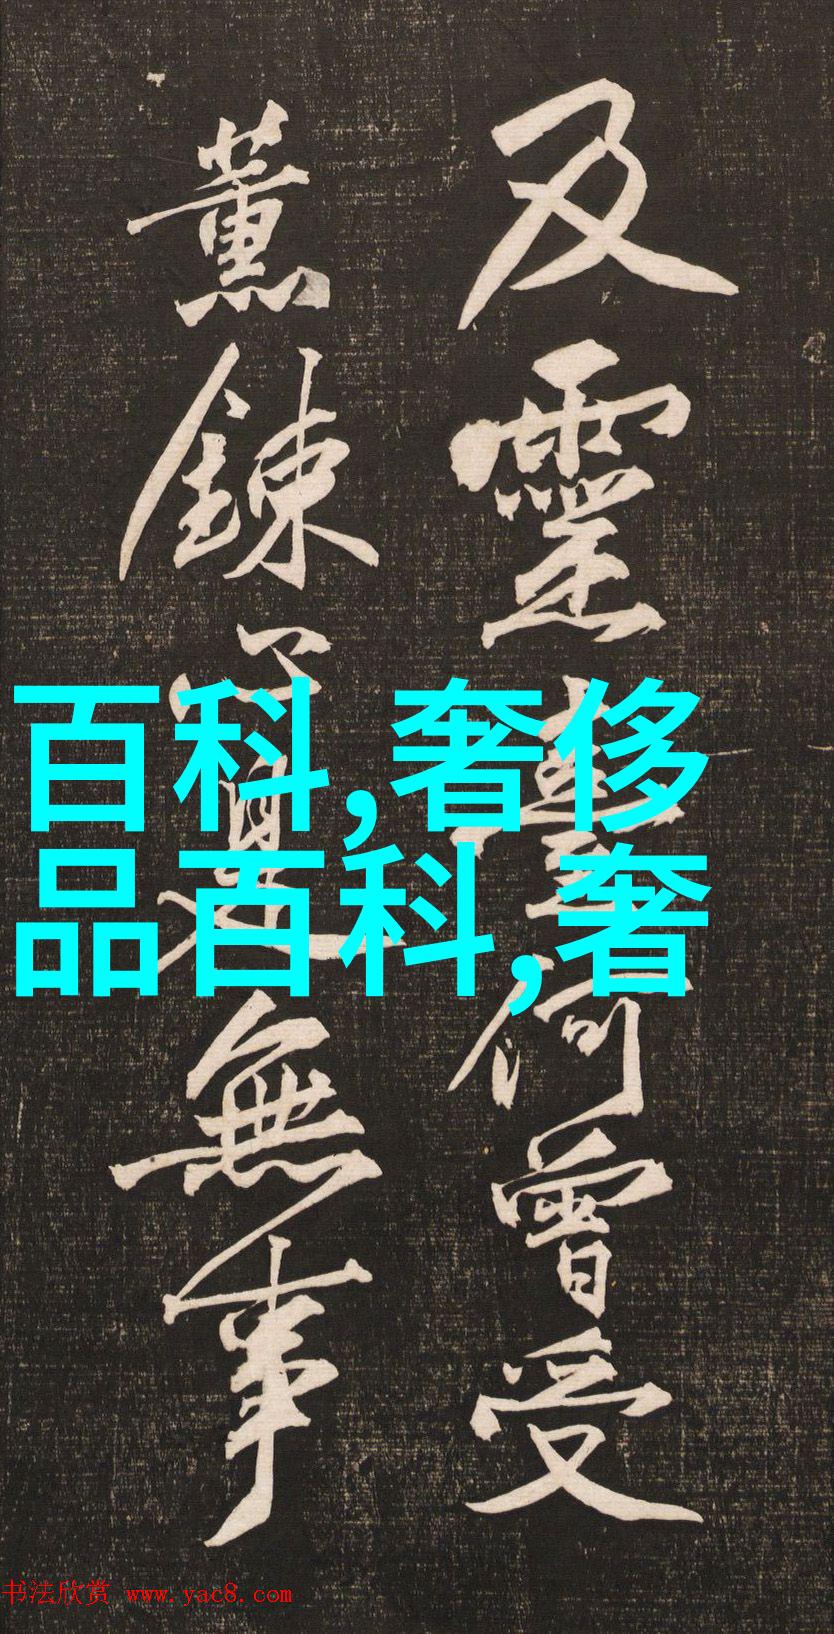 及靈臺何曾受
薰鍊心更無事
百科,奢侈
品百科,奢
书法欣赏 www.yac8.com